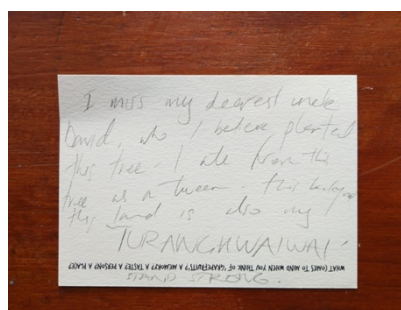 I miss my dearest uncle
David, who I believe planted
this tree. I ate from this
tree as a tween. This
this land is also my
TURANGAWAIWAI
WHAT COMES TO MIND WHEN YOU THINK OF GRAPEFRUIT? A MEMORY? A TASTE? A PERSON? A PLACE?
STAND STRONG.